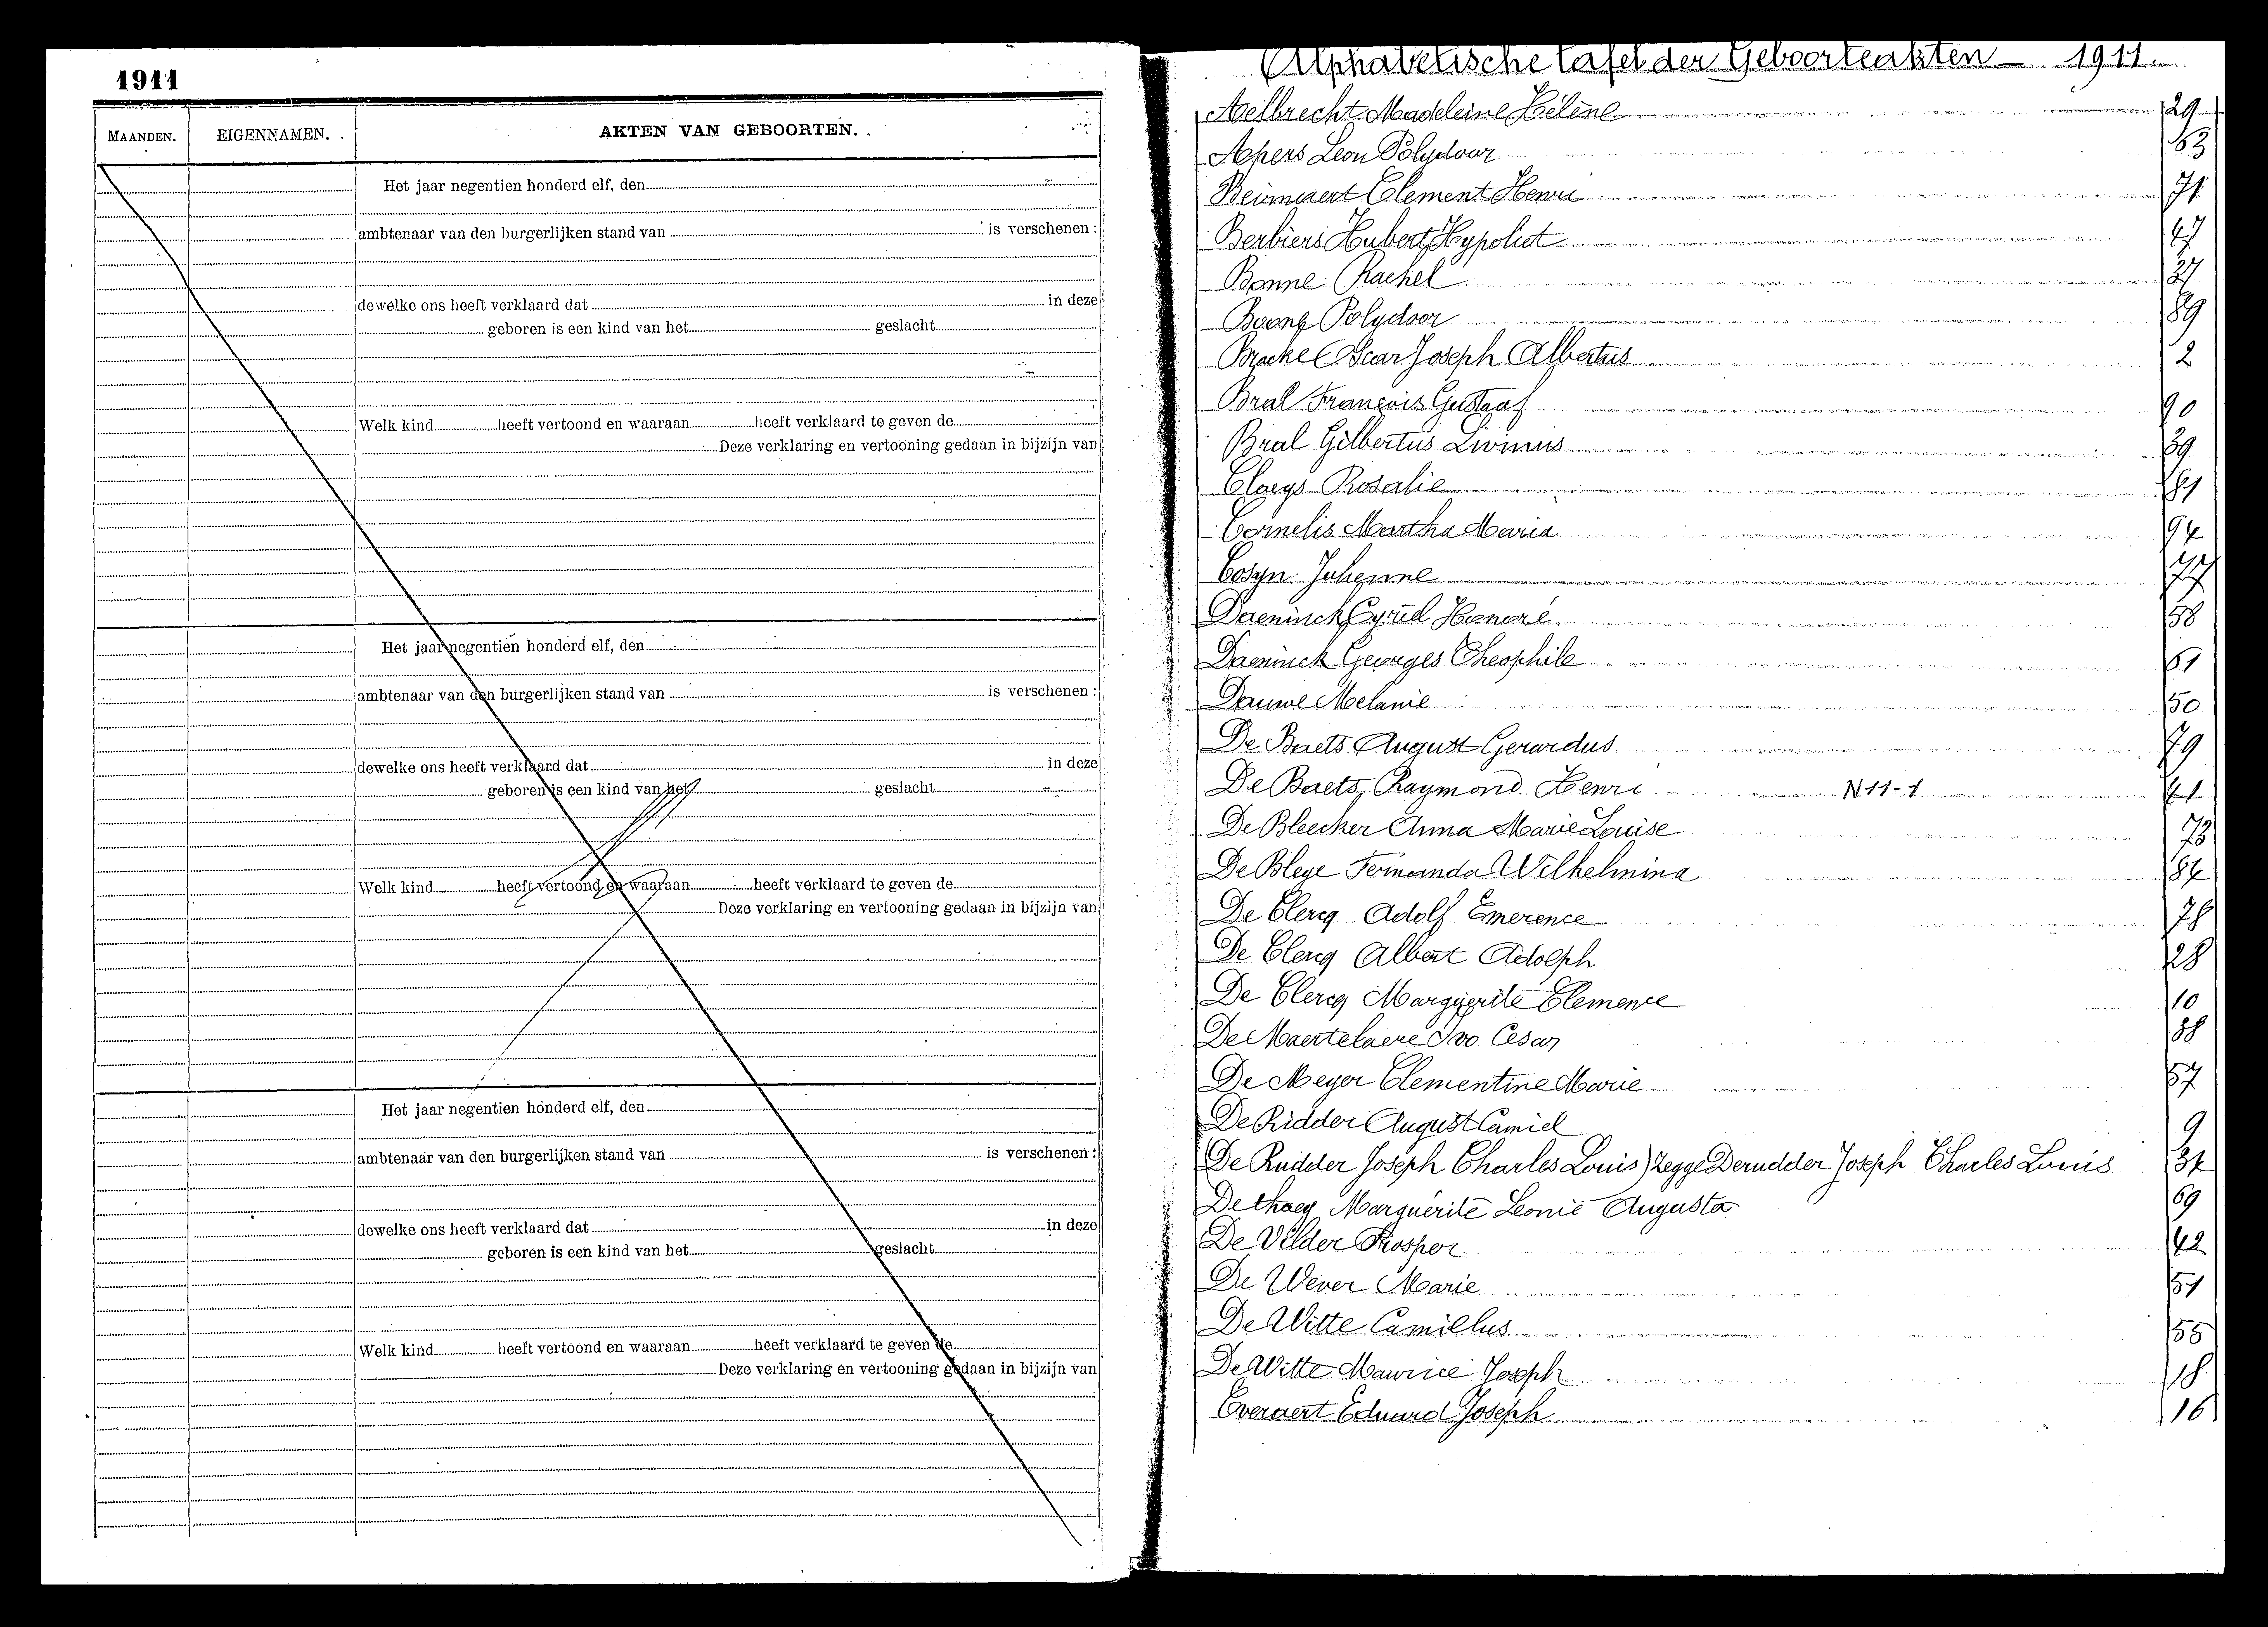 1911
MAANDEN. EIGENNAMEN. AKTEN VAN GEBOORTEN.
Het jaar negentien honderd elf, den
ambtenaar van den burgerlijken stand van is verschenen :
dewelke ons heeft verklaard dat in deze
geboren is een kind van het geslacht
Welk kind heeft vertoond en waaraan heeft verklaard te geven de
Deze verklaring en vertooning gedaan in bijzijn van
Het jaar negentien honderd elf, den
ambtenaar van den burgerlijken stand van is verschenen :
dewelke ons heeft verklaard dat in deze
geboren is een kind van het geslacht
Welk kind heeft vertoond en waaraan heeft verklaard te geven de
Deze verklaring en vertooning gedaan in bijzijn van
Het jaar negentien honderd elf, den
ambtenaar van den burgerlijken stand van is verschenen :
dewelke ons heeft verklaard dat in deze
geboren is een kind van het geslacht
Welk kind heeft vertoond en waaraan heeft verklaard te geven de
Deze verklaring en vertooning gedaan in bijzijn van
Alphabetische tafel der Geboorteakten — 1911.
Aelbrecht Madeleine Hélène 29
Apers Leon Polydoor 63
Beirnaert Clement Henri 71
Berbiers Hubert Hypoliet 47
Bonne Rachel 37
Boone Polydoor 89
Bracke Oscar Joseph Albertus 2
Bral François Gustaaf 90
Bral Gilbertus Livinus 39
Claeys Rosalie 81
Cornelis Martha Maria 94
Cosyn Julienne 77
Daeninck Cyriel Honoré 58
Daeninck Georges Theophile 61
Dauwe Melanie 50
De Baets August Gerardus 79
De Baets Raymond Henri N 11-1 41
De Bleecker Anna Marie Louise 73
De Bleye Fernanda Wilhelmina 84
De Clercq Adolf Emerence 78
De Clercq Albert Adolph 28
De Clercq Marguerite Clemence 10
De Maertelaere Ivo Cesar 88
De Meyer Clementine Marie 57
De Ridder August Camiel 9
(De Rudder Joseph Charles Louis) zegge Derudder Joseph Charles Louis 34
De thaey Marguérite Leonie Augusta 69
De Vilder Prosper 42
De Wever Marie 51
De Witte Camillus 55
De Witte Maurice Joseph 18
Everaert Eduard Joseph 16